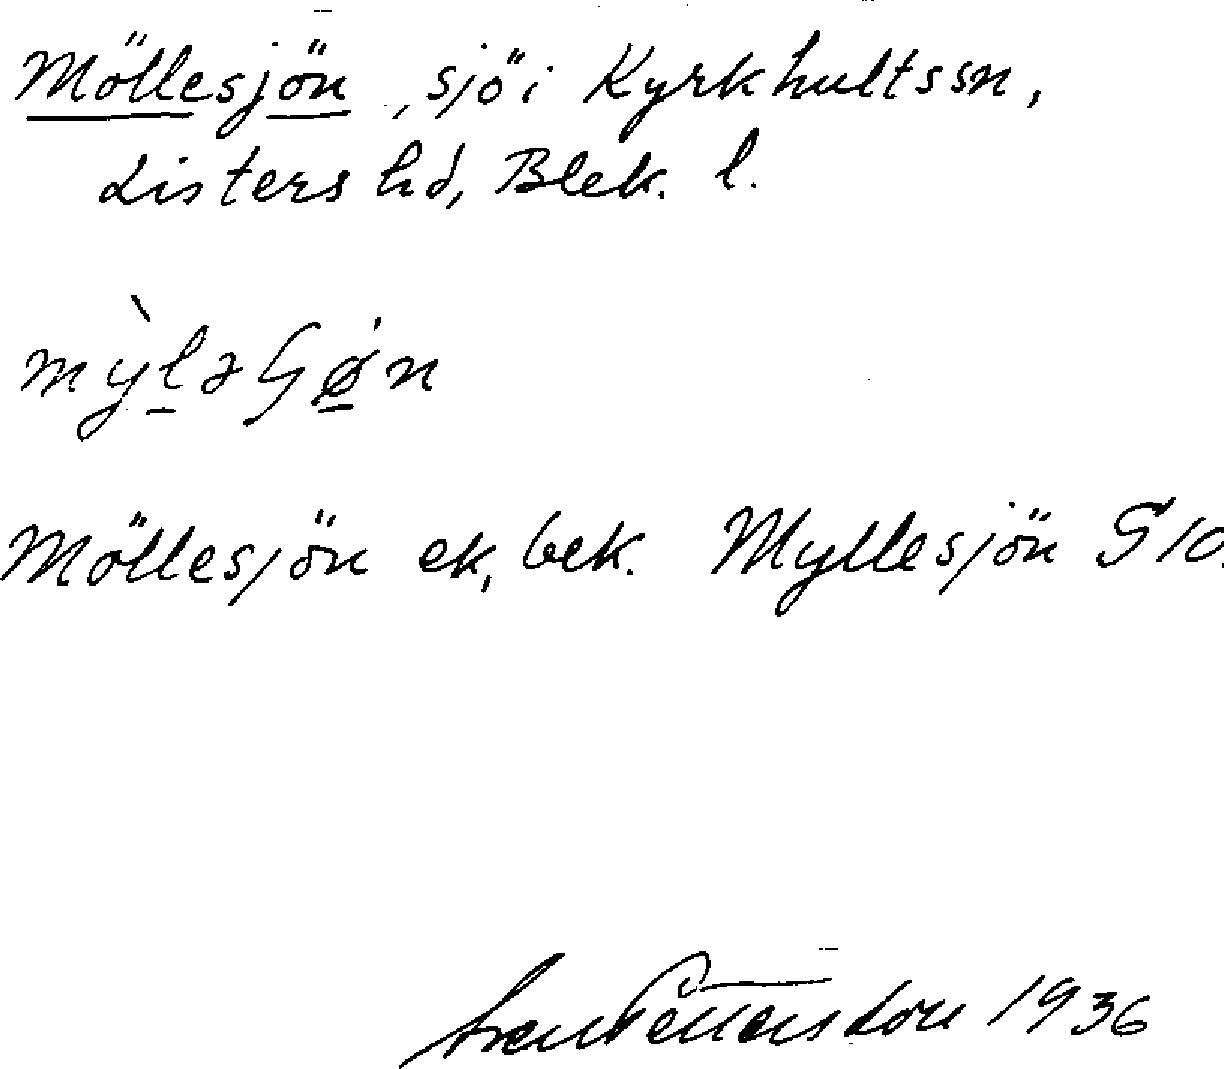 Möllesjön, sjö i Kyrkhults sn,
Listers hd, Blek. l.
Möllesjön ek, bek. Myllesjön G 10.
Pettersson 1936